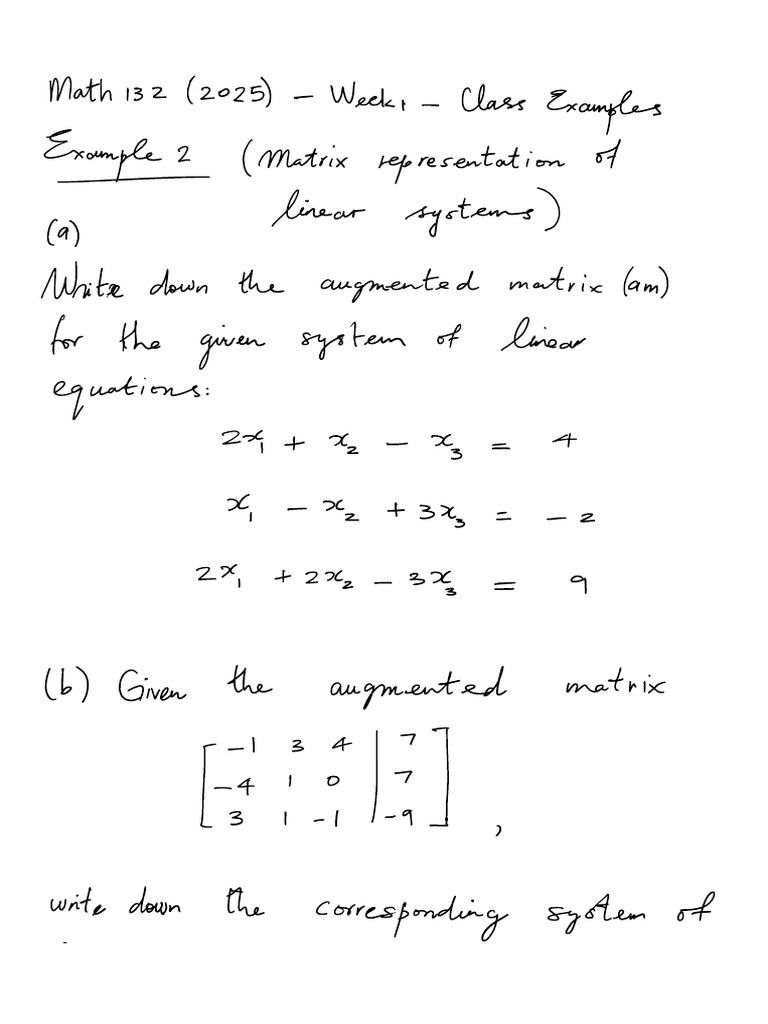 Math 132 (2025) – Week 1 – Class Examples
Example 2 (Matrix representation of
linear systems)
(a)
Write down the augmented matrix (am)
for the given system of linear
equations:
2x₁ + x₂ – x₃ = 4
x₁ – x₂ + 3x₃ = –2
2x₁ + 2x₂ – 3x₃ = 9
(b) Given the augmented matrix
[ –1 3 4 | 7 ]
[ –4 1 0 | 7 ]
[ 3 1 –1 | –9 ] ,
write down the corresponding system of